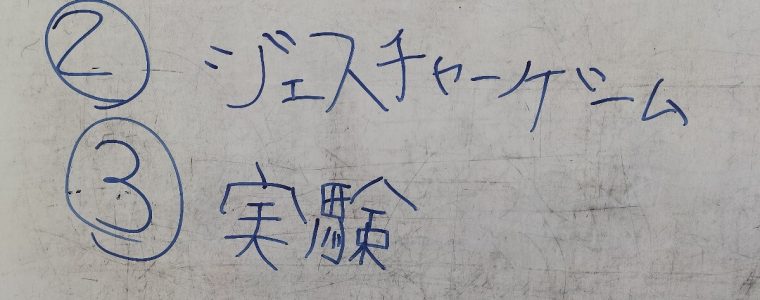 ② ジェスチャーゲーム
③ 実験